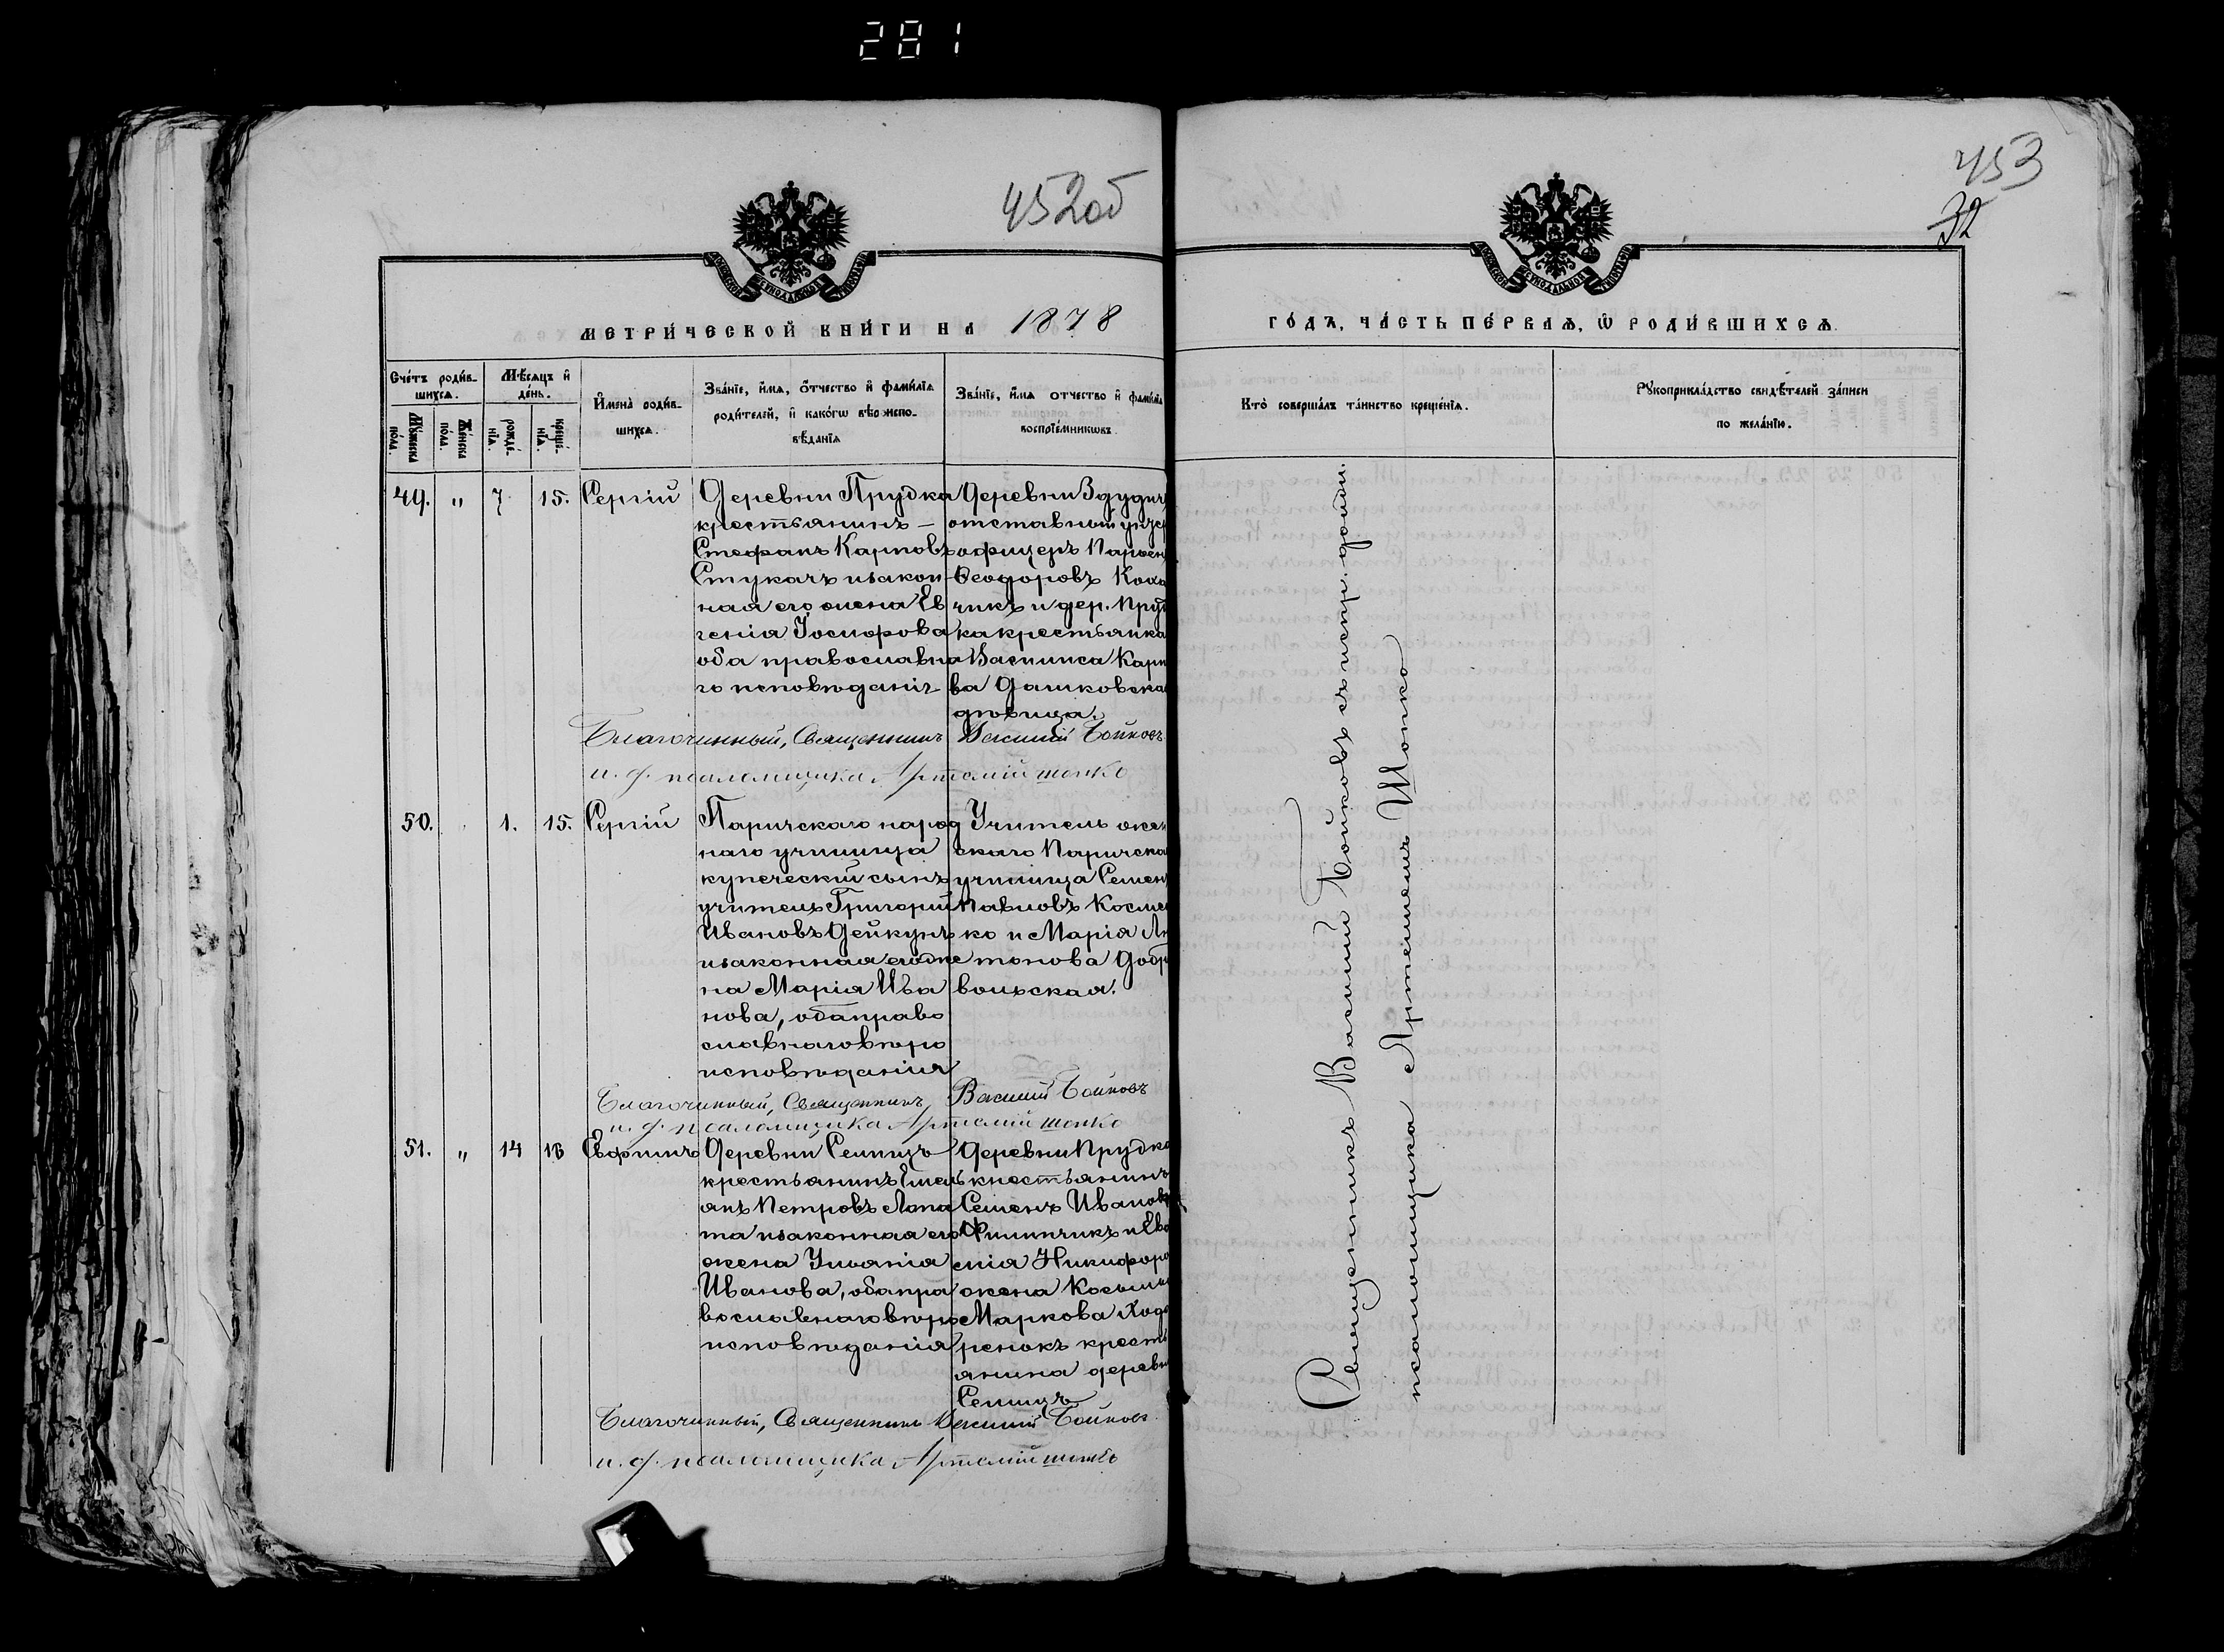 281
452об
453
32
МЕТРИ́ЧЕСКОЙ КНИ́ГИ НА 1878
ГО́ДЪ, ЧА́СТЬ ПЕ́РВАѦ, Ѡ҆ РОДИ́ВШИХСѦ.
Сче́тъ роди́в-
шихсѧ.
Мѣ́сѧцъ и҆
де́нь.
Мꙋ́жеска
по́ла.
Же́нска
по́ла.
рожде́-
нїѧ.
креще́-
нїѧ.
И҆мена̀ роди́в-
шихсѧ.
Зва́нїе, и҆́мѧ, ѻ҆́тчество и҆ фами́лїѧ
роди́телей, и҆ како́гѡ вѣроиспо-
вѣ́данїѧ
Зва́нїе, и҆́мѧ ѻ҆тчество и҆ фами́лїѧ
воспрїе́мникѡвъ.
Кто̀ соверша́лъ та́инство креще́нїѧ.
Рꙋкоприкла́дство свидѣ́телей за́писи
по жела́нїю.
49. " 7 15. Сергій
Деревни Прудка
крестьянинъ —
Стефанъ Карповъ
Стукачъ и закон-
ная его жена Ев
генія Іосифова
оба православна
го исповѣданія
Деревни Здудич
отставный унтер
офицеръ Парѳен
Ѳеодоровъ Коха
чикъ и дер. Пруд
ка крестьянка
Василиса Карп
ва Дашковска
дѣвица.
Благочинный, Священникъ Василій Бойковъ
и. д. псаломщика Артемій Шопко
50. 1. 15. Сергій
Паричскаго народ
наго училища
купеческій сынъ
учитель Григорій
Ивановъ Дейкунъ
и законная его же
на Марія Ива
нова, оба право
славнаго вѣро
исповѣданія
Учитель жен
скаго Паричска
училища Семен
Павловъ Косме
ко и Марія Ан
тонова Добр
вольская.
Благочинный, Священникъ, Василій Бойковъ
и. д. псаломщика Артемій Шопко
51. " 14 18 Евфимъ
Деревни Селищъ
крестьянинъ Емель
янъ Петровъ Лопа
та и законная его
жена Ульянія
Иванова, оба пра
вославнаго вѣро
исповѣданія
Деревни Прудка
крестьянинъ
Семенъ Иванов
Филипчикъ и Евд
Никифоро
жена Косьмы
Маркова Ход
ренокъ крестья
янина деревн
Селищъ
Благочинный, Священникъ Василій Бойковъ.
и. д. псаломщика Артемій Шопко
Священникъ Василій Бойковъ съ испр. должн.
псаломщика Артемiемъ Шопко